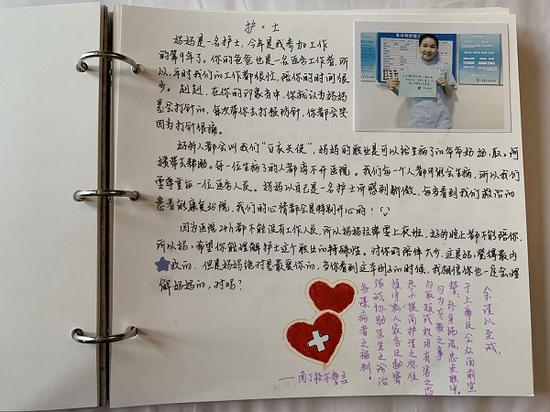 护·士
妈妈是一名护士,今年是我参加工作
的第9年了。你的爸爸也是一名医务工作者,所
以,平时我们的工作都很忙,陪你的时间很
少。赳赳,在你的印象当中,你就认为妈妈
是会打针的,每次带你去打预防针,你都会哭
因为打针很痛。
好的人都会叫我们“白衣天使”,妈妈的职业是可以给生病了的爷爷奶奶、叔、阿
姨带去帮助。每一位生病了的人都离不开医院。我们每一个人都可能会生病,所以我们
要尊重每一位医务人员。妈妈以自己是一名护士而感到骄傲,每当看到我们救治的
患者能康复出院,我们的心情都会是特别开心的!
因为医院24h都不能没有工作人员,所以妈妈经常要上夜班,好的晚上都不能陪你,
所以妈,希望你能理解护士这个职业的特殊性。对你的陪伴太少,这是妈,觉得最内
疚的,但是妈妈绝对是最爱你的,当你看到这本册子的时候,我相信你也一定会理
解妈妈的,对吗?
余谨以至诚,
于上帝及会众面前宣
誓:终身纯洁,忠贞职守。
勿为有损之事,
勿取服或故用有害之药
尽力提高护理之标准
慎守病人家务及秘密
竭诚协助医生之诊治
务谋病者之福利。
——南丁格尔誓言